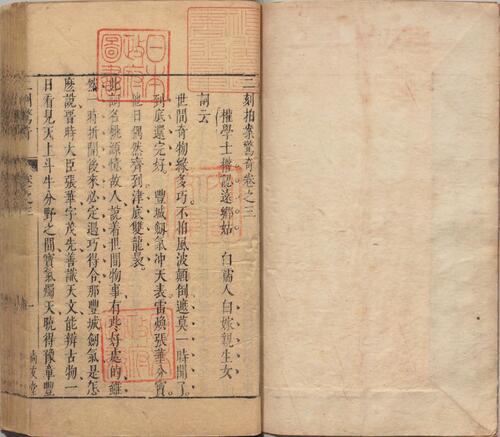 二刻拍案驚奇卷之三
權學士權認遠鄉姑　白孺人白嫁親生女
詞云
世間奇物緣多巧不怕風波顛倒遮莫一時開了
到底還完好　豐城劍氣冲天表雷煥張華分寶
他日偶然齊到津底雙龍裊
此詞名桃源憶故人說着世間物事有些好處的雖
然一時拆開後來必定遇巧得合那豐城劍氣是怎
麽說晉時大臣張華字茂先善識天文能辨古物一
日看見天上斗牛分野之間寶氣燭天曉得豫章豐
一
尚友堂
日本政府圖書